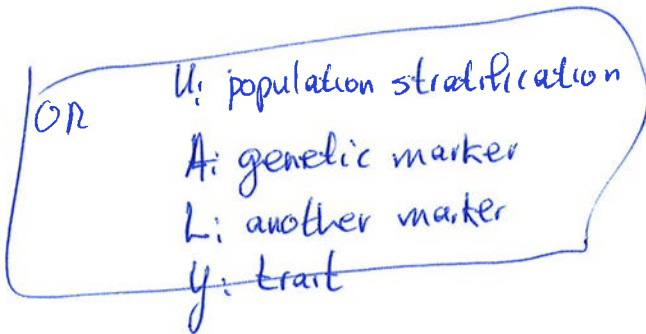 OR
U: population stratification
A: genetic marker
L: another marker
Y: trait